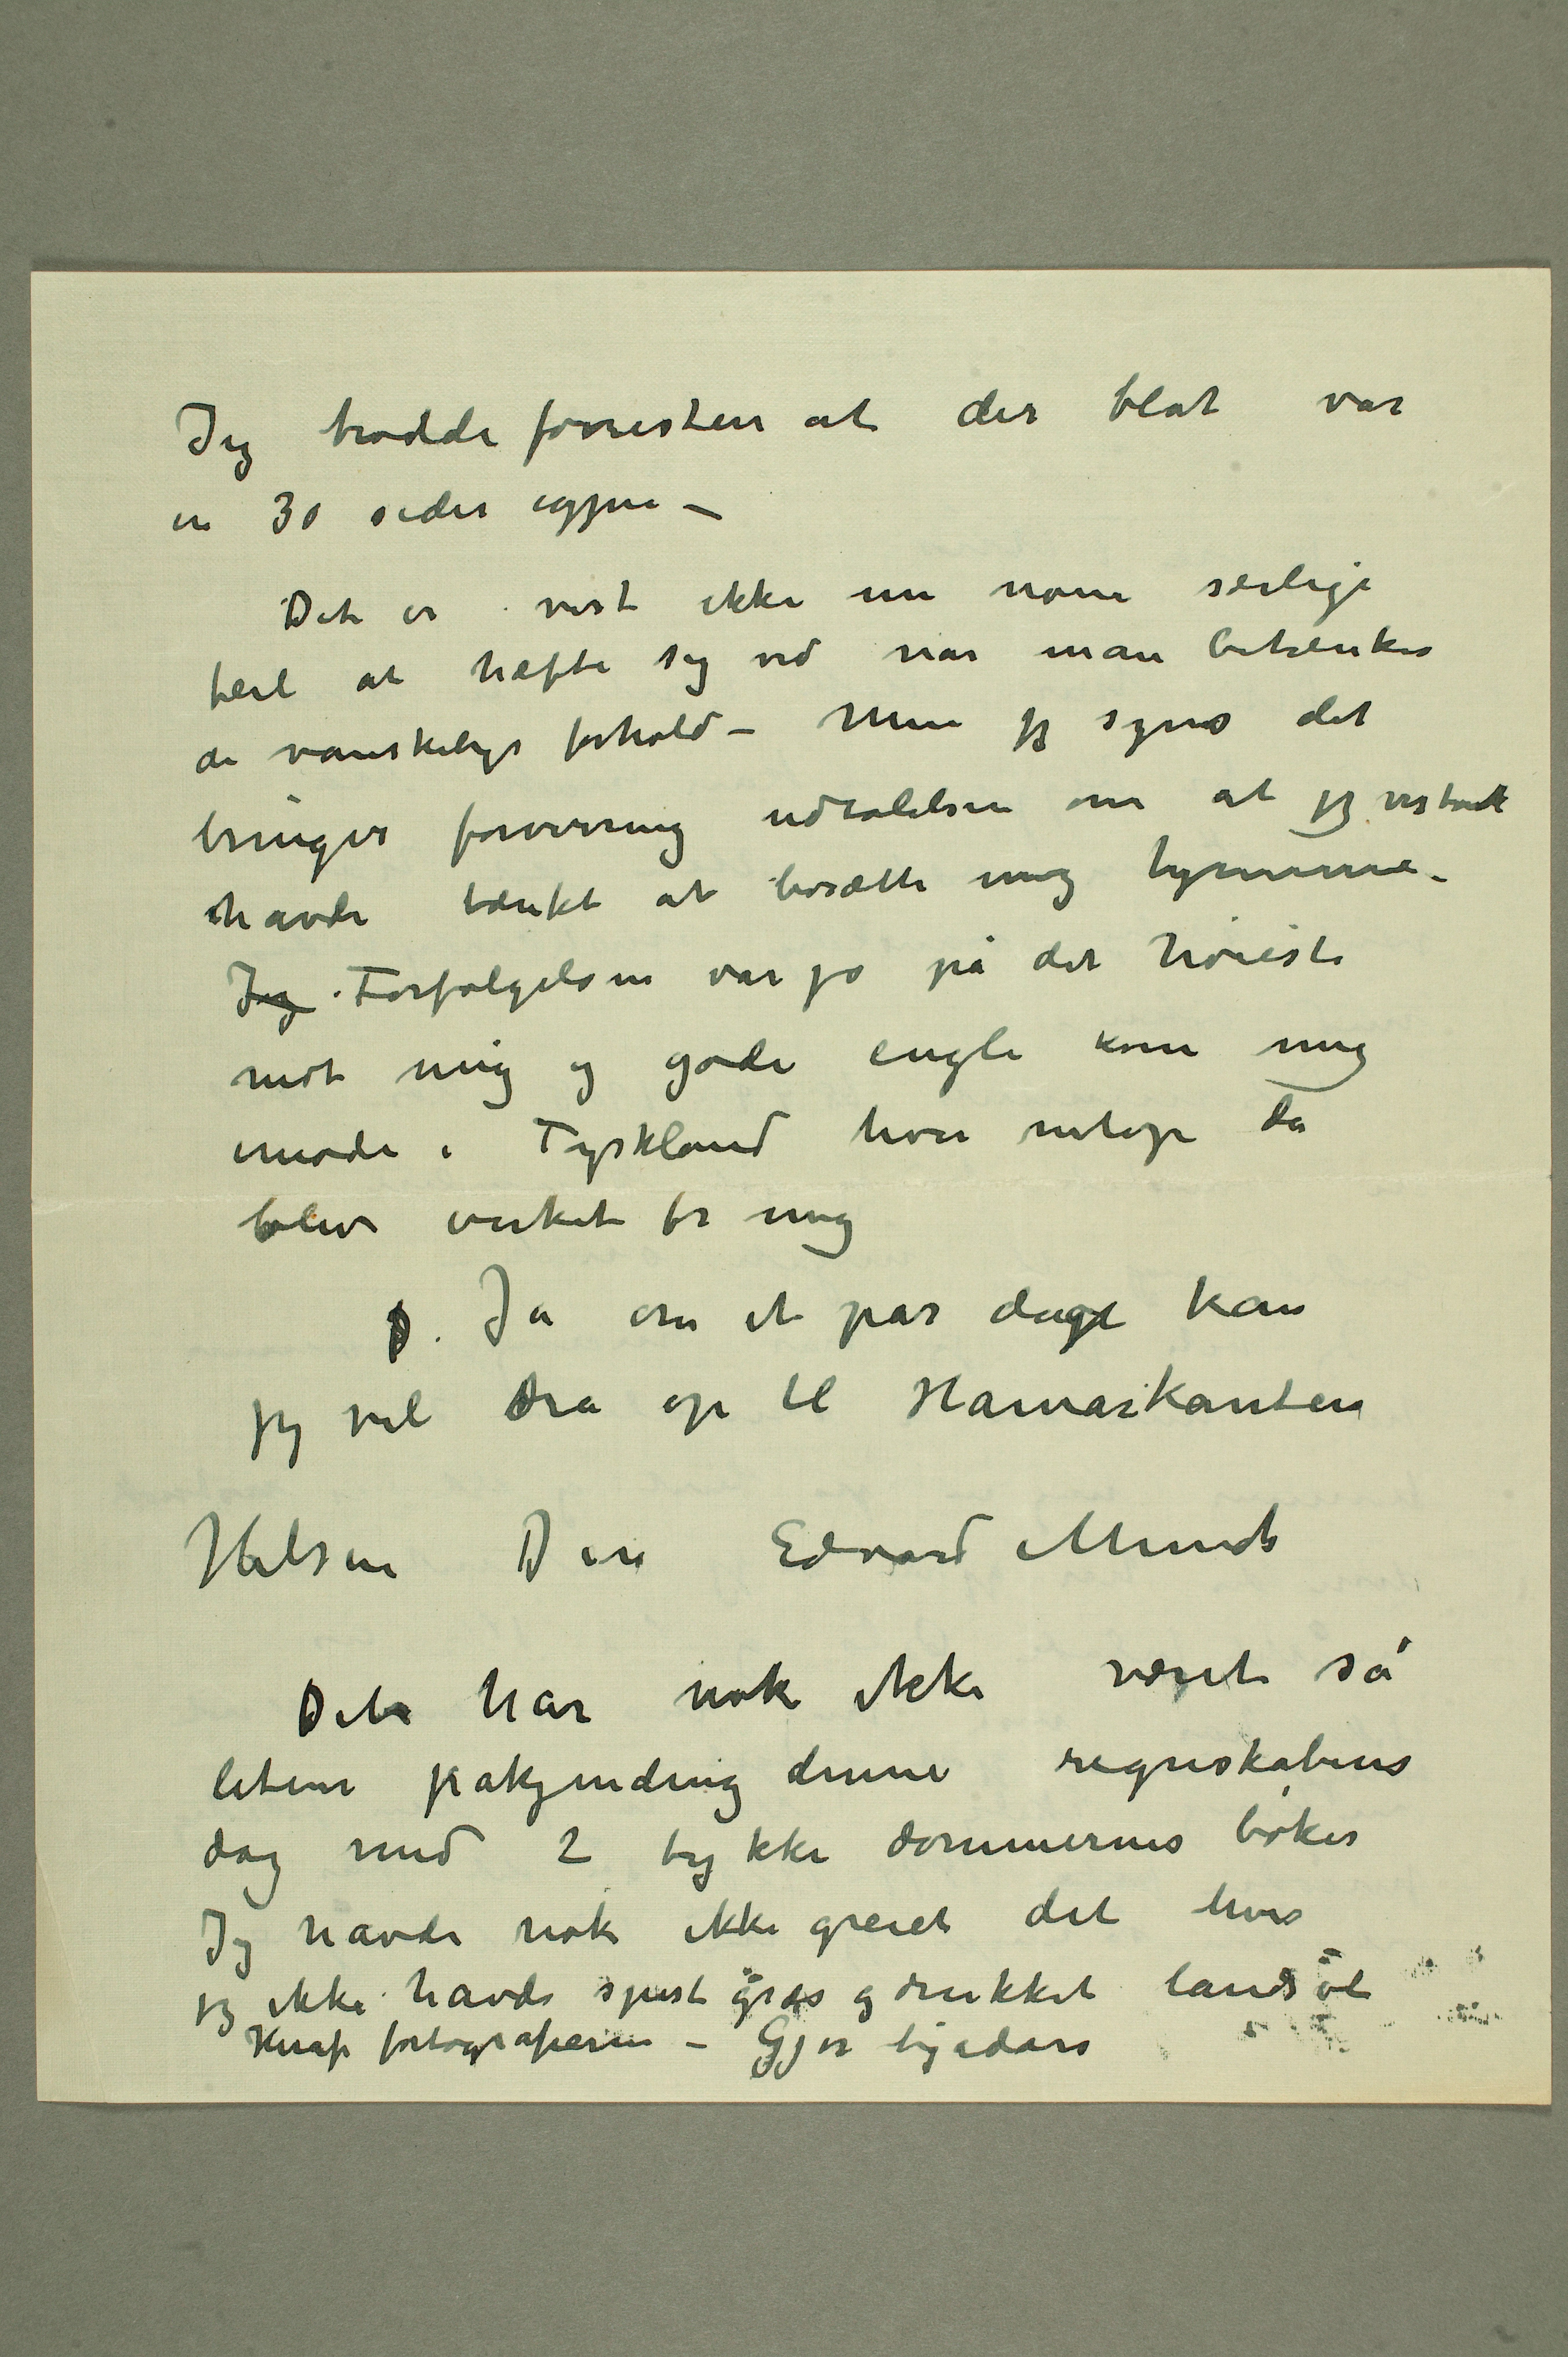 Jeg trodde forresten at der blot var
en 30 sider igjen –
Det er vist ikke nu noen særlige
feil at hæfte sig ved når man betænker
de vanskelige forhold – Men jeg synes det
bringer forvirring udtalelsen om at jeg
havde tænkt at bosætte mig hjemme –
Jeg Forfølgelsen var jo på det høieste
mot mig og gode engle kom mig
imøde i Tyskland hvor netop da
blev virket for mig
Ja om et par dage kan
jeg vel dra op til Hamarkanten
Hilsen Din Edvard Munch
Det har nok ikke været så
liten påkjending denne regnskabens
dag med 2 tykke dommernes bøker
Jeg havde nok ikke greiet det hvis
jeg ikke havde spist gräs og drukket landsøl
Knap fortografierne – Gjør